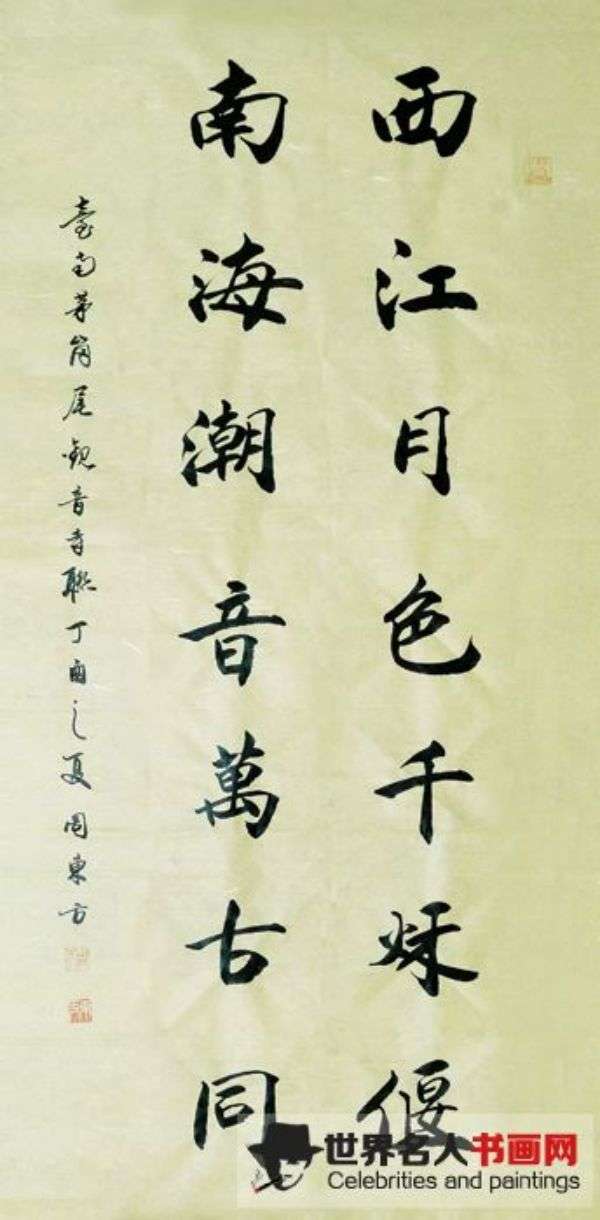 西江月色千秌偃
南海潮音萬古同
臺南茅崗尾觀音寺聯丁酉之夏周東方
世界名人书画网
Celebrities and paintings